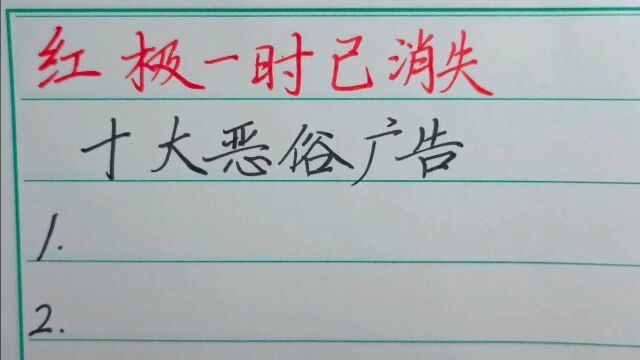 红极一时已消失
十大恶俗广告
1.
2.